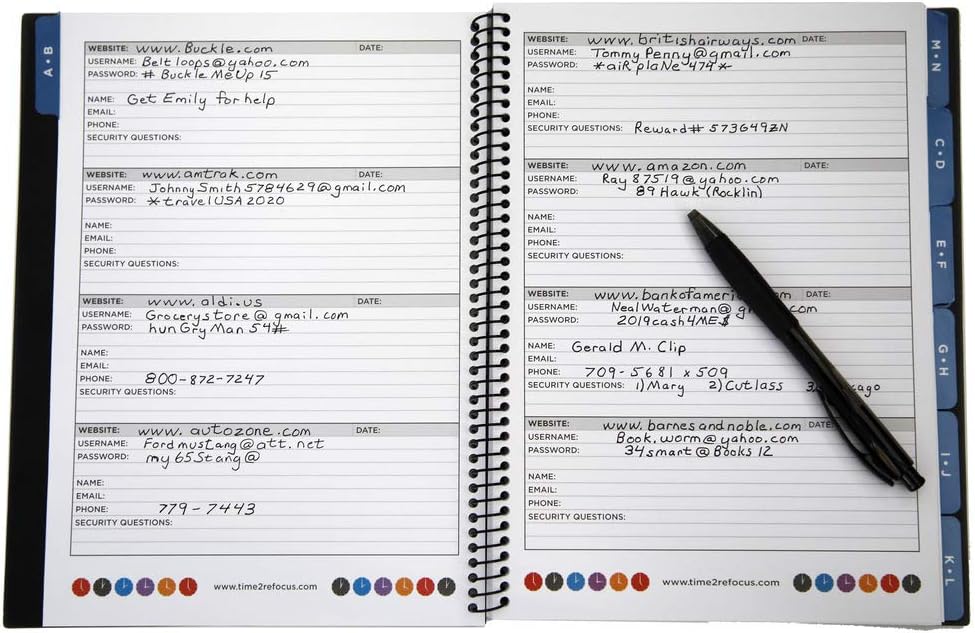 A • B
WEBSITE: www.Buckle.com DATE:
USERNAME: Beltloops@yahoo.com
PASSWORD: # BuckleMeUp15
NAME: Get Emily for help
EMAIL:
PHONE:
SECURITY QUESTIONS:
WEBSITE: www.amtrak.com DATE:
USERNAME: JohnnySmith5784629@gmail.com
PASSWORD: *travelUSA2020
NAME:
EMAIL:
PHONE:
SECURITY QUESTIONS:
WEBSITE: www.aldi.us DATE:
USERNAME: Grocerystore@gmail.com
PASSWORD: hunGryMan54#
NAME:
EMAIL:
PHONE: 800-872-7247
SECURITY QUESTIONS:
WEBSITE: www.autozone.com DATE:
USERNAME: Fordmustang@att.net
PASSWORD: my65Stang@
NAME:
EMAIL:
PHONE: 779-7443
SECURITY QUESTIONS:
www.time2refocus.com
WEBSITE: www.britishairways.com DATE:
USERNAME: TommyPenny@gmail.com
PASSWORD: *aiRplaNe474*
NAME:
EMAIL:
PHONE:
SECURITY QUESTIONS: Reward# 573G49ZN
WEBSITE: www.amazon.com DATE:
USERNAME: Ray87519@yahoo.com
PASSWORD: 89Hawk(Rocklin)
NAME:
EMAIL:
PHONE:
SECURITY QUESTIONS:
WEBSITE: DATE:
USERNAME: NealWaterman@
PASSWORD: 2019cash4ME$
NAME: Gerald M. Clip
EMAIL:
PHONE: 709-5681 x509
SECURITY QUESTIONS: 1)Mary 2)Cutlass
WEBSITE: www.barnesandnoble.com DATE:
USERNAME: Book.worm@yahoo.com
PASSWORD: 34smart@Books12
NAME:
EMAIL:
PHONE:
SECURITY QUESTIONS:
www.time2refocus.com
M • N
C • D
E • F
G • H
I • J
K • L